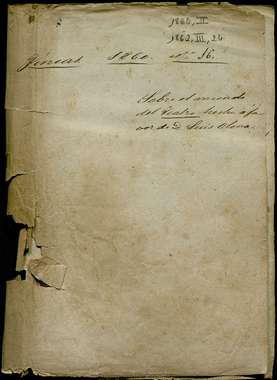 1860, II
1860, III, 24
Fincas 1860. Nº 16.
Sobre el arriendo
del Teatro hecho á fa
vor de D. Luis Olona.